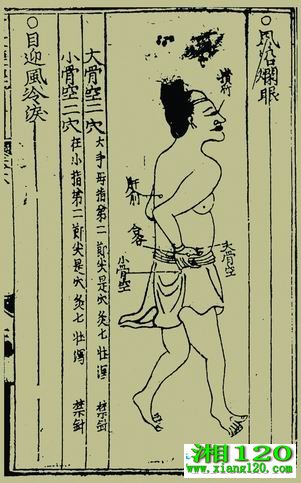 ○風沿爛眼
攢竹
肝俞
合谷
大骨空
小骨空
大骨空二穴 大手母指第二節尖是穴灸七壯瀉 禁針
小骨空二穴 在小指第二節尖是穴灸七壯瀉 禁針
○目迎風冷淚
湘120
www.xiang120.com